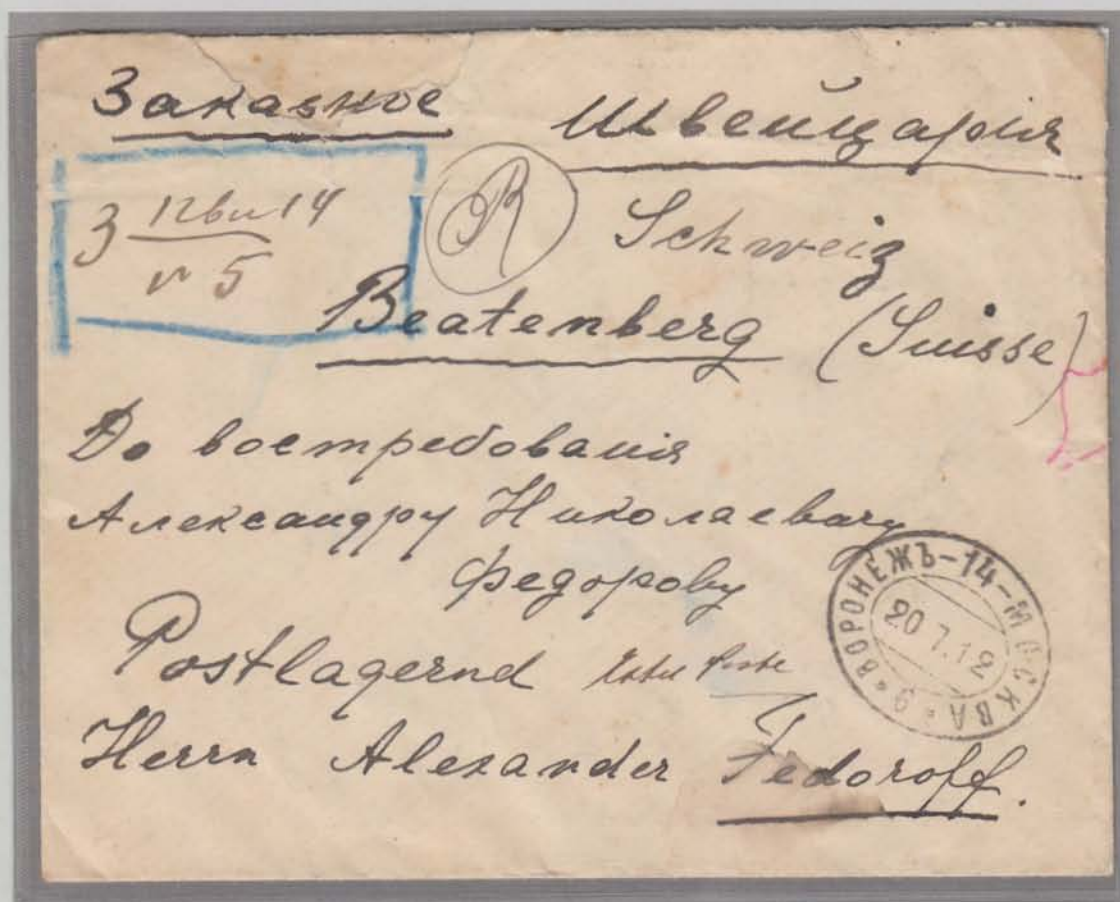 Заказное
Швейцарія
З пви 14
№ 5
R
Schweiz
Beatenberg (Suisse)
До востребованія
Александру Николаевичу
Федорову
Postlagernd
Herrn Alexander Fedoroff.
* ВОРОНЕЖЪ-14-МОСКВА * 9
20 7.12